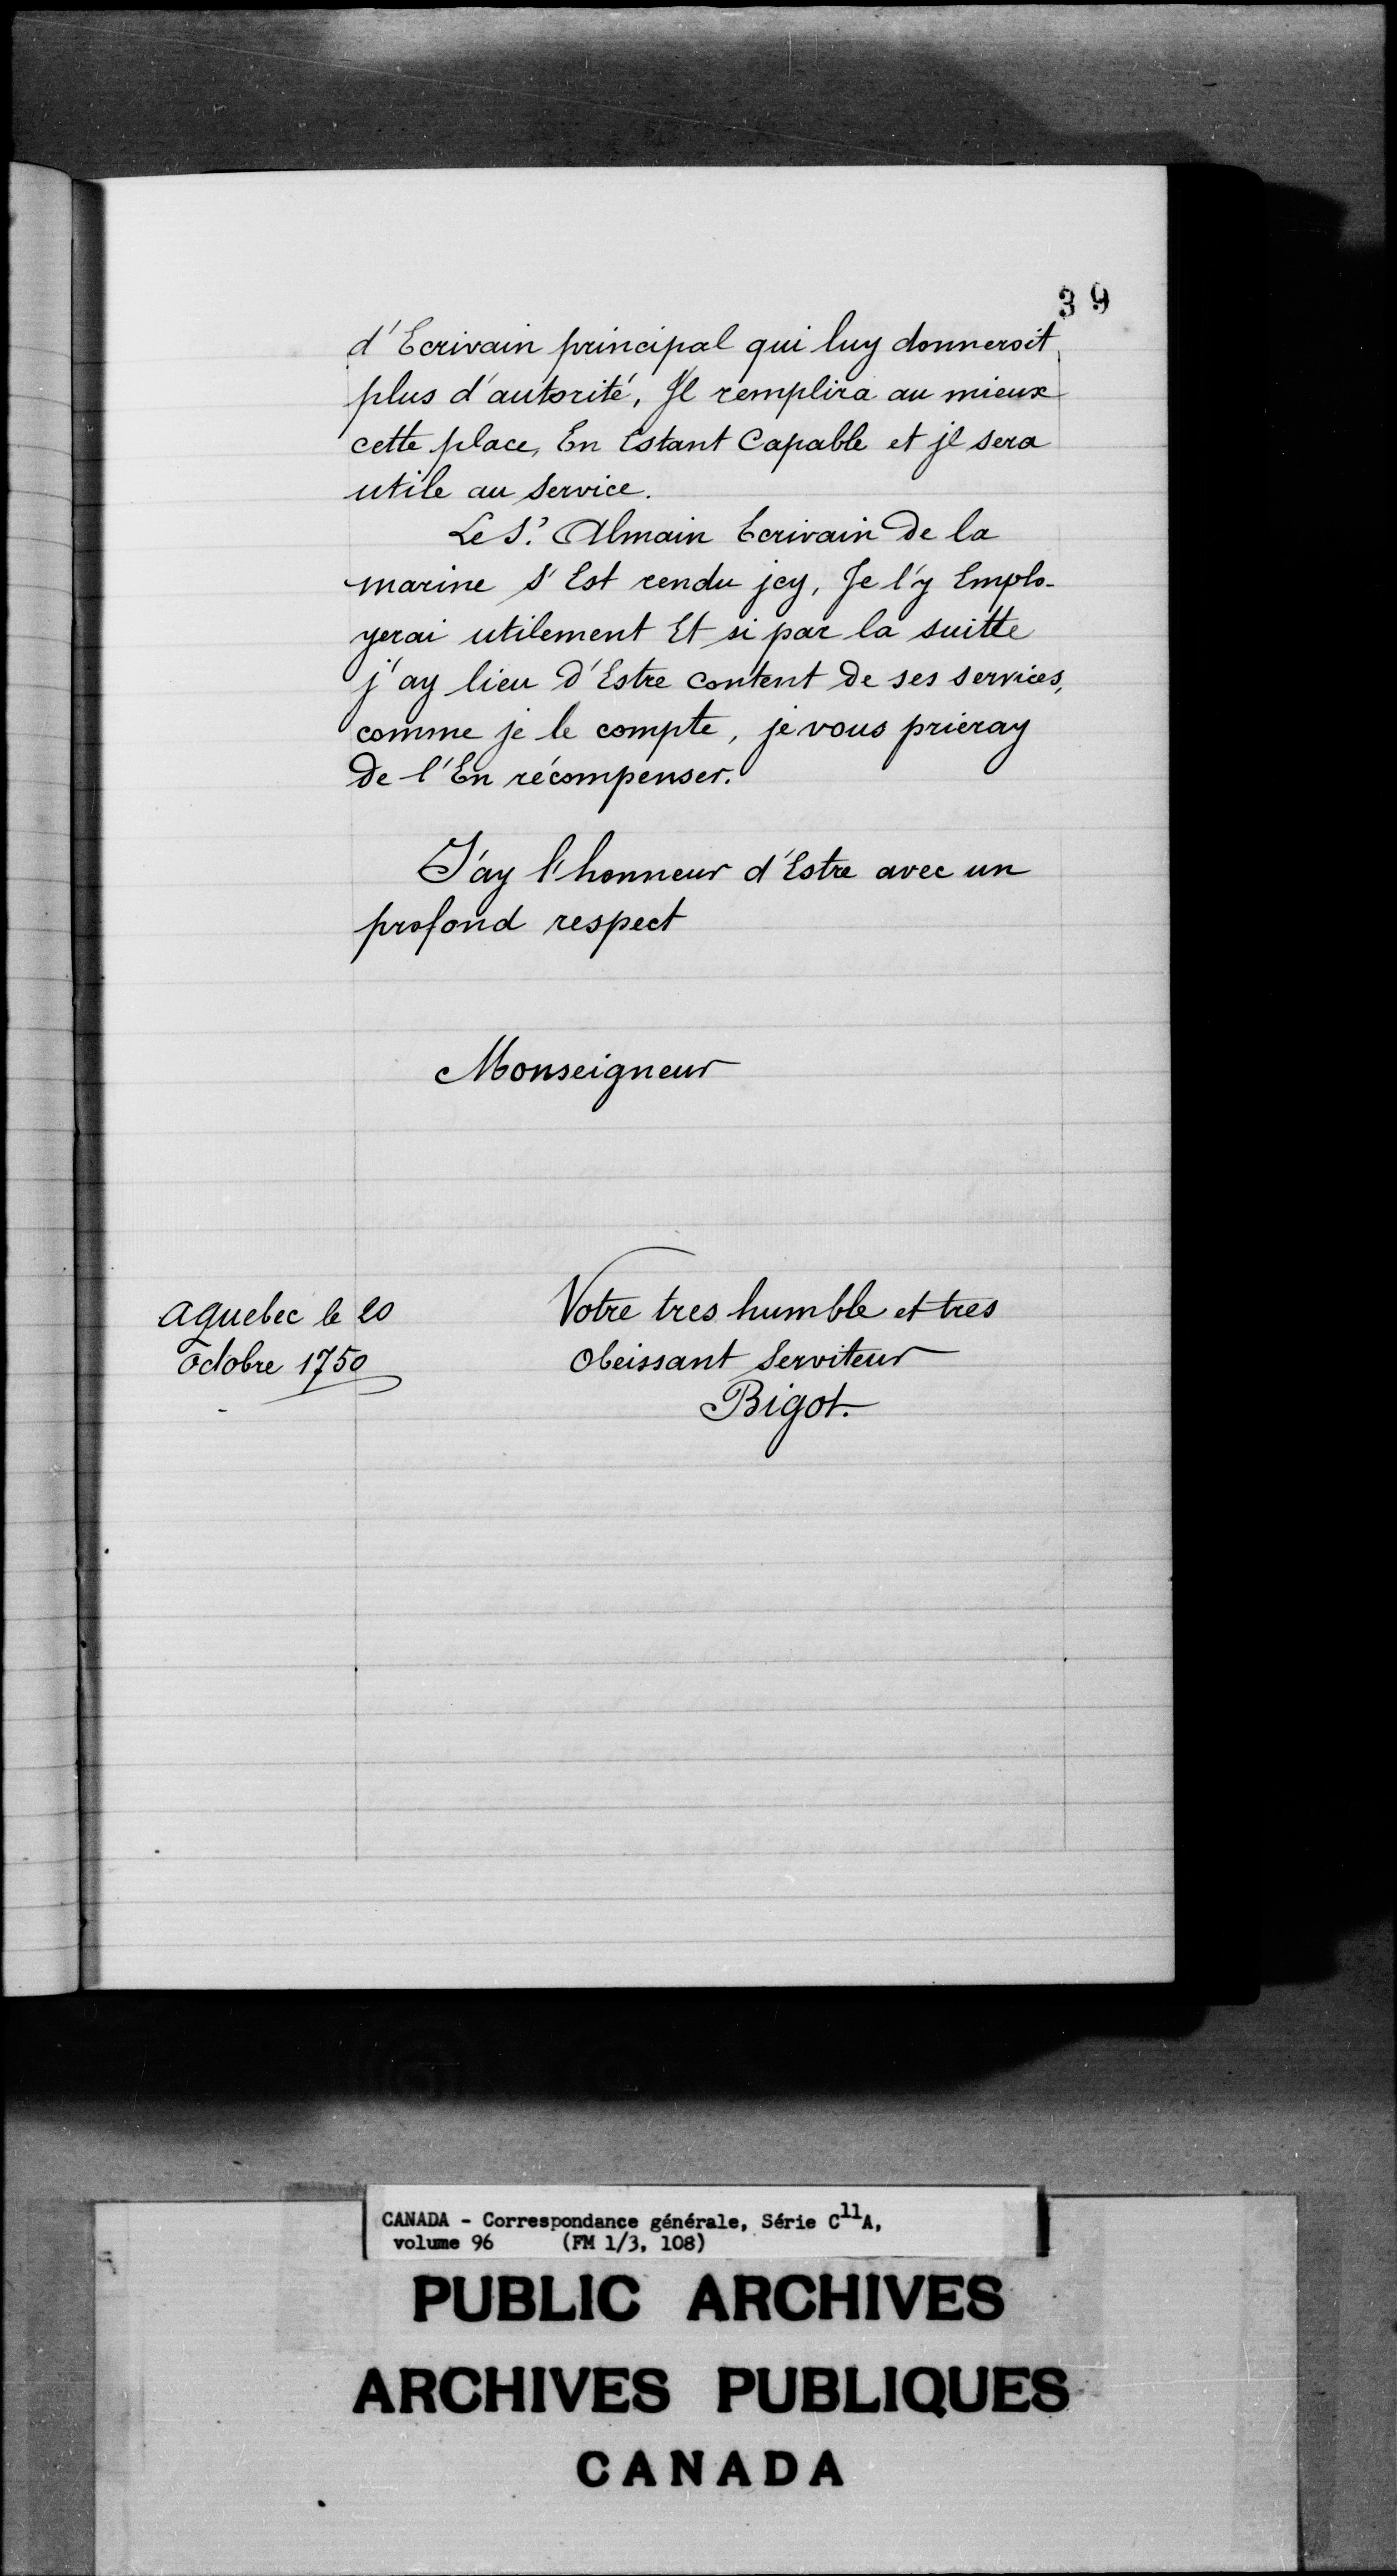 39
d'Ecrivain principal qui luy donneroit
plus d'autorité, Jl remplira au mieux
cette place, En Estant Capable et jl sera
utile au Service.
Le S.r Almain Ecrivain De la
marine s'Est rendu jcy, Je l'y Emplo-
yerai utilement Et si par la suitte
j'ay lieu D'Estre content De ses services,
comme je le compte, je vous prieray
De l'En récompenser.
J'ay l'honneur d'Estre avec un
profond respect
Monseigneur
Votre tres humble et tres
Obeissant Serviteur
Bigot.
aquebec le 20
octobre 1750
CANADA - Correspondance générale, Série C11A,
volume 96 (FM 1/3, 108)
PUBLIC ARCHIVES
ARCHIVES PUBLIQUES
CANADA